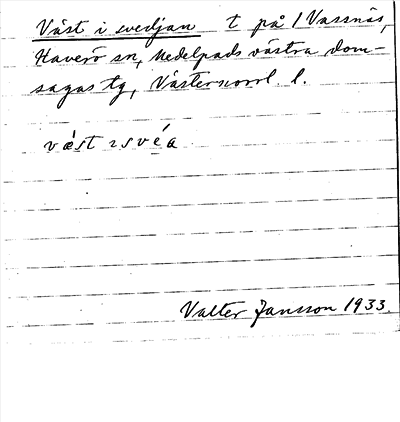 Väst i svedjan t på 1 Vassnäs,
Haverö sn, Medelpads västra dom-
sagas tg, Västernorrl. l.
væst ı své̱a
Valter Jansson 1933.